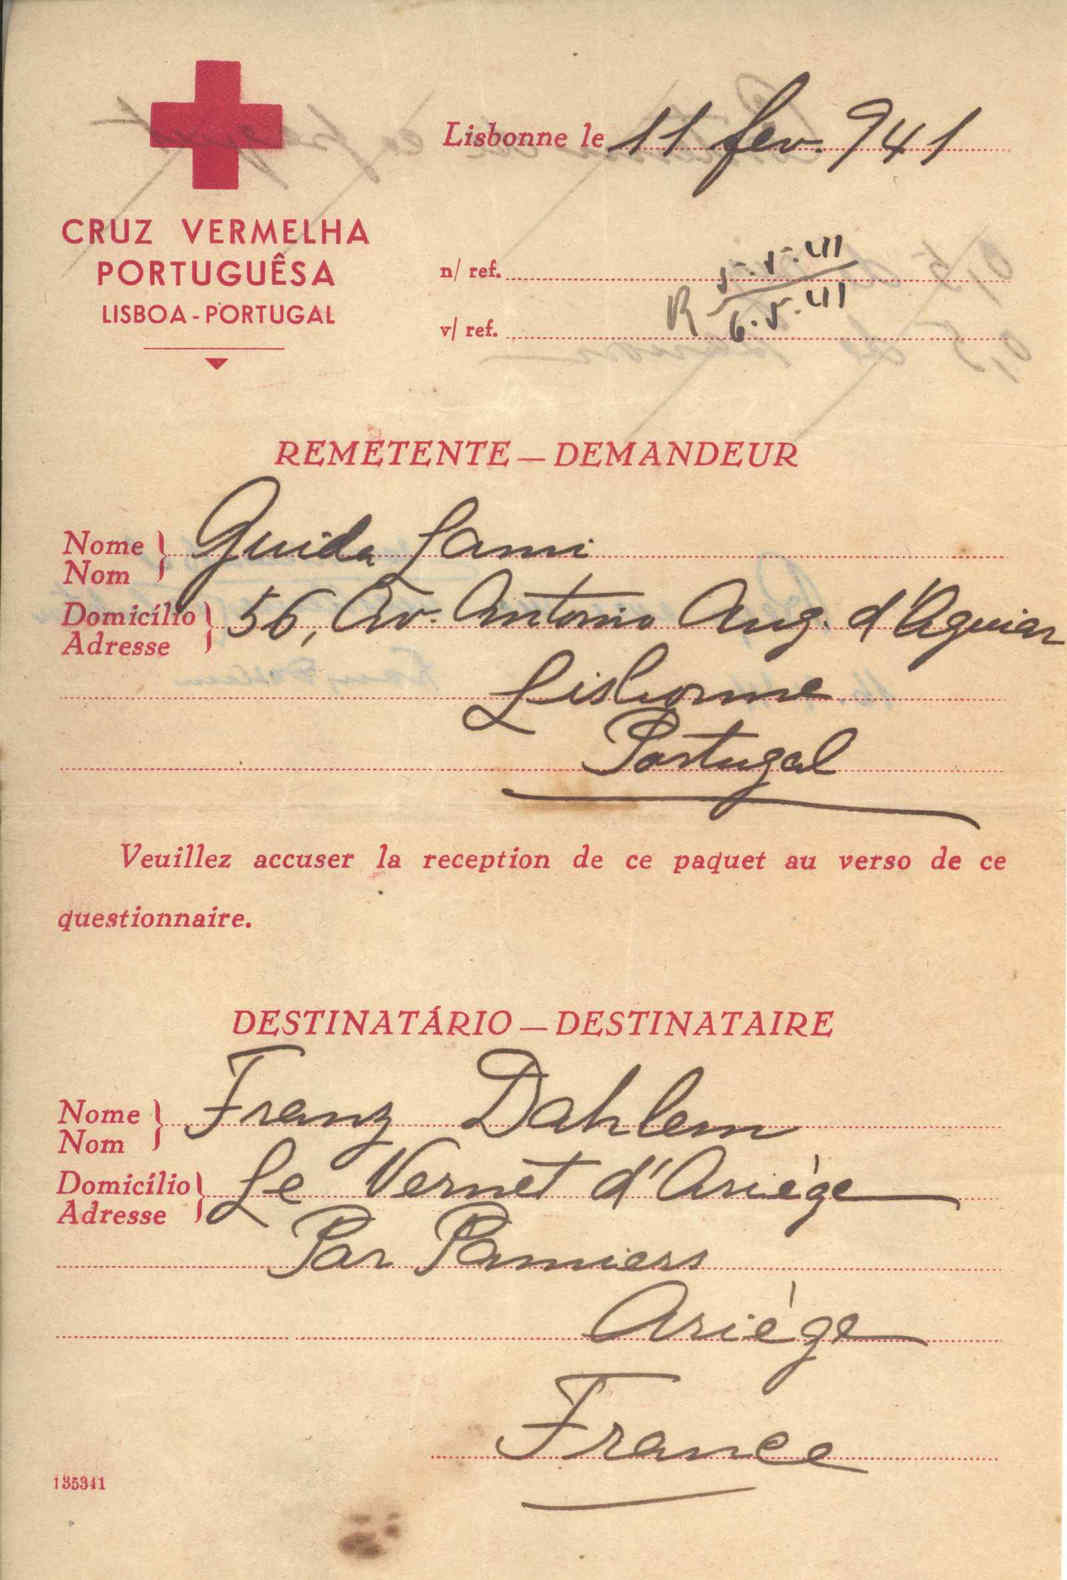 Lisbonne le 11 fev. 941
CRUZ VERMELHA
PORTUGUÊSA
LISBOA - PORTUGAL
n/ ref. 5.5.41
v/ ref. R 6.5.41
REMETENTE — DEMANDEUR
Nome
Nom
Guida Lami
Domicílio
Adresse
56, Av. Antonio Aug. d'Aguiar
Lisbonne
Portugal
Veuillez accuser la reception de ce paquet au verso de ce
questionnaire.
DESTINATÁRIO — DESTINATAIRE
Nome
Nom
Franz Dahlem
Domicílio
Adresse
Le Vernet d'Ariège
Par Pamiers
Ariège
France
135341